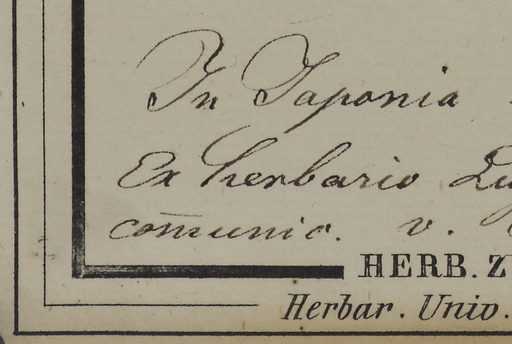 In Japonia
Ex herbario
com̄unic. v.
HERB. Z
Herbar. Univ.